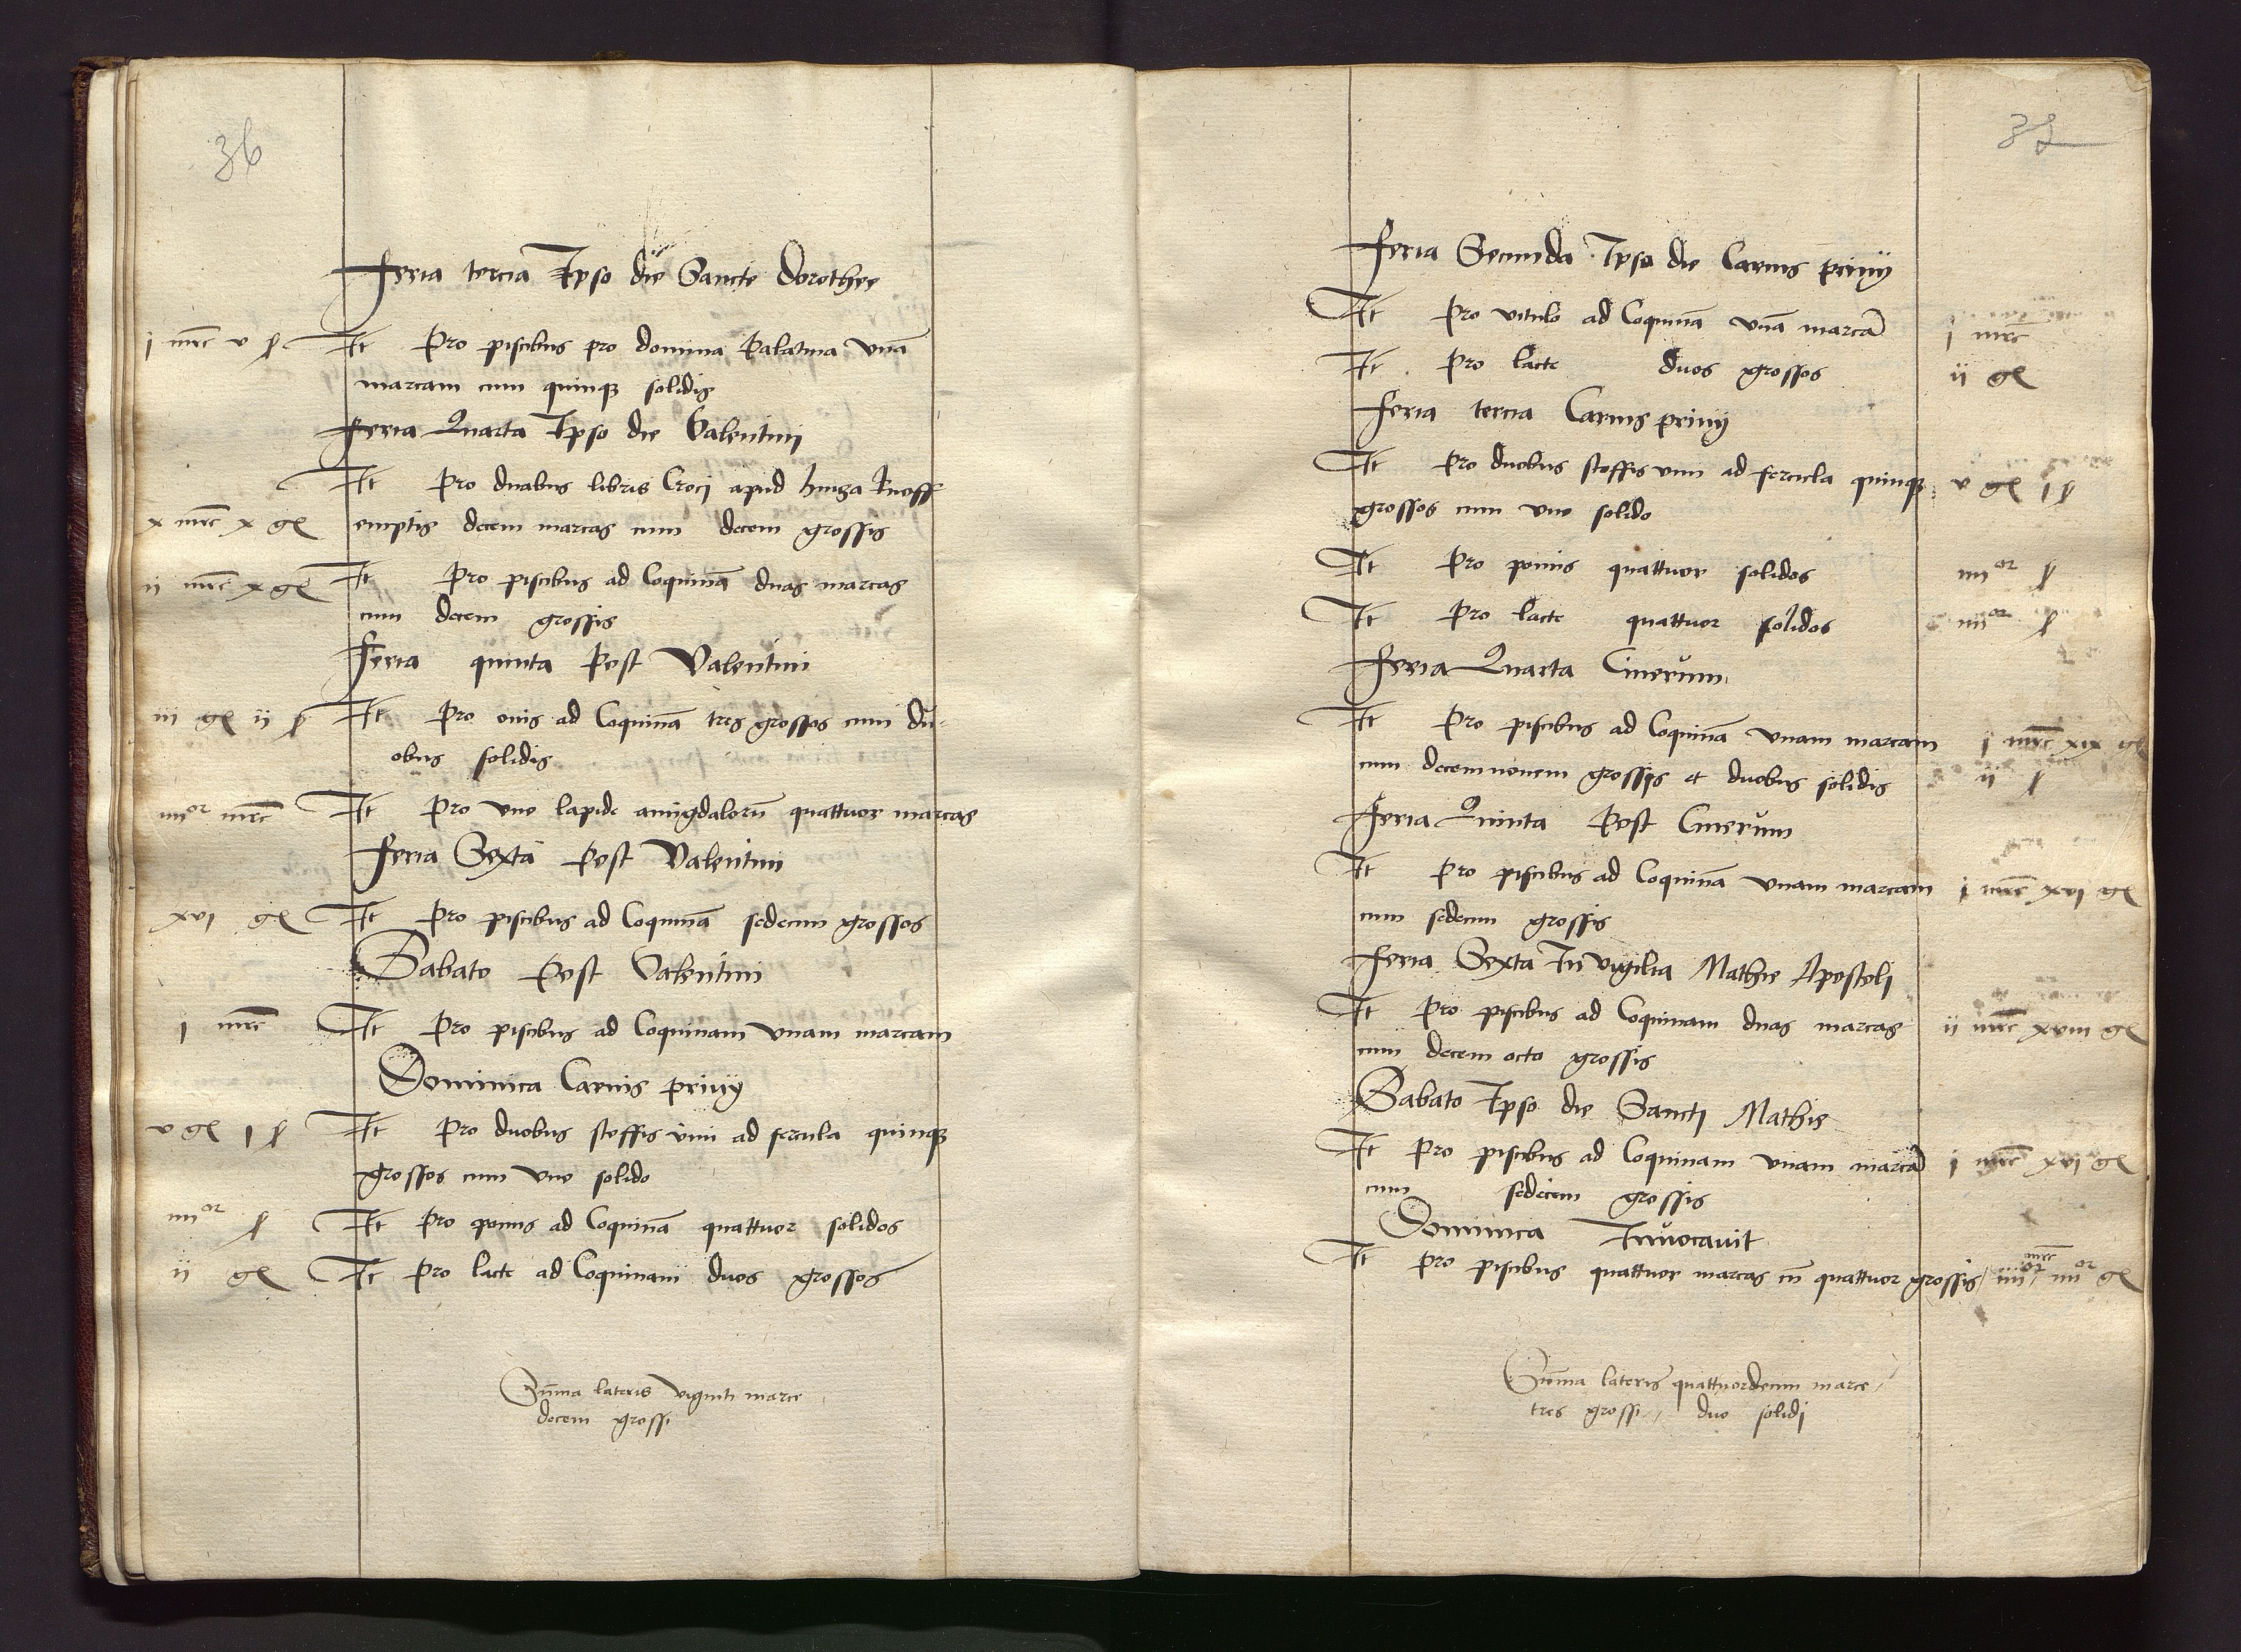 36
Feria tercia Ipso die Sancte Dorothee
j mrc v ß It Pro piscibus pro domina Palatina vnā
marcam cum quinque solidis
Feria Quarta Ipso die Valentini
It Pro duabus libris Croci apud
x mrc x gl emptis decem marcas cum decem grossis
ii mrc x gl It Pro piscibus ad Coquinā duas marcas
cum decem grossis
Feria quinta Post Valentini
iii gl ii ß It Pro ouis ad Coquinā tres grossos cum du-
obus solidis
iiiior mrc It Pro vno lapide amigdalorū quattuor marcas
Feria Sexta Post Valentini
xvi gl It Pro piscibus ad Coquinā sedecim grossos
Sabato Post Valentini
j mrc It Pro piscibus ad Coquinam vnam marcam
Dominica Carnis priuij
v gl j ß It Pro duobus stoffis vini ad fercula quinque
grossos cum vno solido
iiiior ß It Pro pomis ad Coquinā quattuor solidos
ii gl It Pro lacte ad Coquinam duos grossos
Sūma lateris viginti marce
decem grossi
37
Feria Secunda Ipso die Carnis priuij
It Pro vitulo ad Coquinā vnā marcā j mrc
It Pro lacte duos grossos ij gl
Feria tercia Carnis priuij
It Pro duobus stoffis vini ad fercula quinque v gl j ß
grossos cum vno solido
It Pro pomis quattuor solidos iiiior ß
It Pro lacte quattuor solidos iiiior ß
Feria Quarta Cinerum
It Pro piscibus ad Coquinā vnam marcam j mrc xix gl
cum decemnouem grossis et duobus solidis ij ß
Feria Quinta Post Cinerum
It Pro piscibus ad Coquinā vnam marcam j mrc xvi gl
cum sedecim grossis
Feria Sexta In vigilia Mathie Apostoli
It Pro piscibus ad Coquinam duas marcas ij mrc xviii gl
cum decem octo grossis
Sabato Ipso die Sancti Mathis
It Pro piscibus ad Coquinam vnam marcā j mrc xvi gl
cum sedecim grossis
Dominica Inuocauit
It Pro piscibus quattuor marcas cū quattuor grossis iiiior mrc iiiior gl
Sūma lateris quattuordecim marce
tres grossi duo solidi